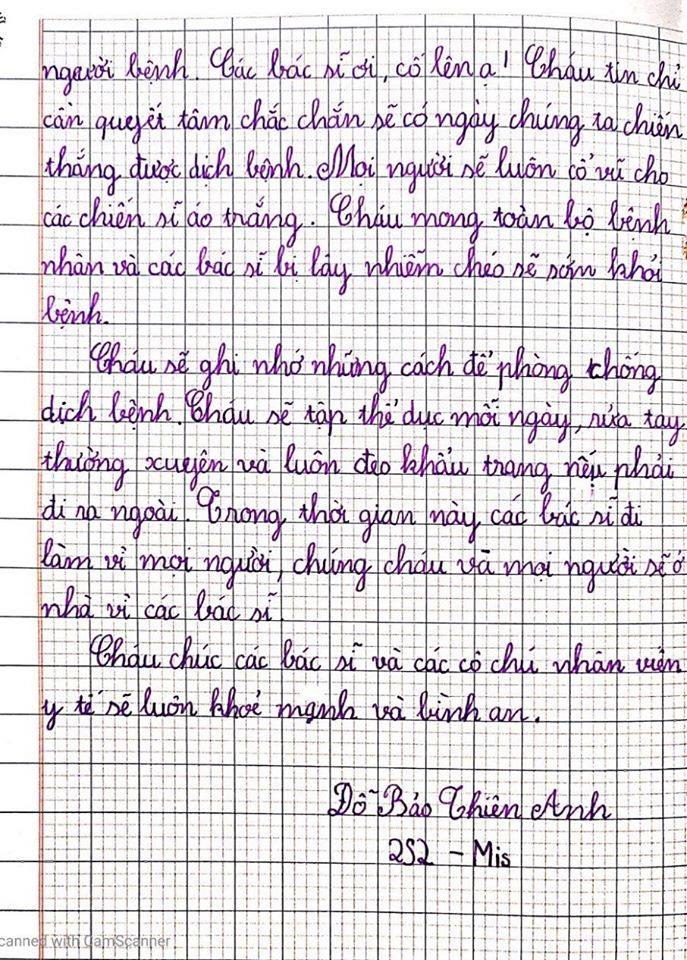 người bệnh. Các bác sĩ ơi, cố lên ạ! Cháu tin chỉ
cần quyết tâm chắc chắn sẽ có ngày chúng ta chiến
thắng được dịch bệnh. Mọi người sẽ luôn cổ vũ cho
các chiến sĩ áo trắng. Cháu mong toàn bộ bệnh
nhân và các bác sĩ bị lây nhiễm chéo sẽ sớm khỏi
bệnh.
Cháu sẽ ghi nhớ những cách để phòng chống
dịch bệnh. Cháu sẽ tập thể dục mỗi ngày, rửa tay
thường xuyên và luôn đeo khẩu trang nếu phải
đi ra ngoài. Trong thời gian này các bác sĩ đi
làm vì mọi người, chúng cháu và mọi người sẽ ở
nhà vì các bác sĩ.
Cháu chúc các bác sĩ và các cô chú nhân viên
y tế sẽ luôn khoẻ mạnh và bình an.
Đỗ Bảo Thiên Anh
2S2 - Mis
canned with CamScanner